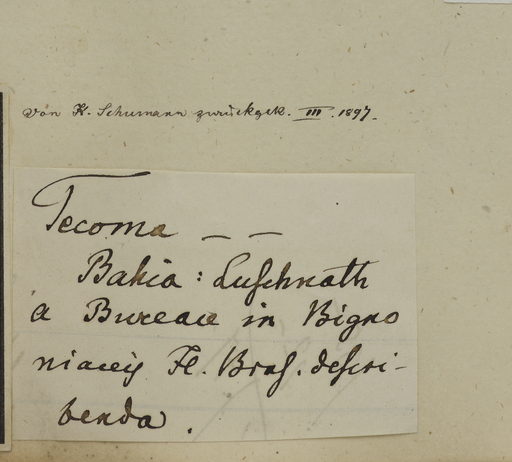 Von K. Schumann zurückgek. III. 1897.
Tecoma — —
Bahia: Luschnath
a Bureau in Bigno
niaceis Fl. Bras. descri-
benda.